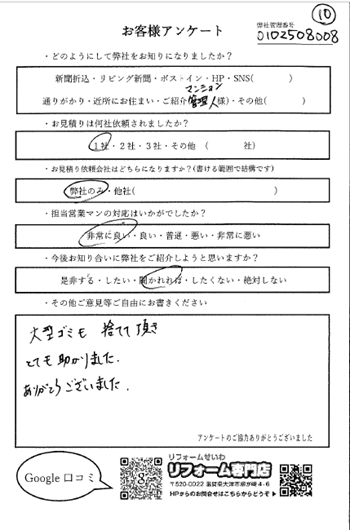 ⑩
弊社管理番号
0102508008
お客様アンケート
・どのようにして弊社をお知りになりましたか？
新聞折込・リビング新聞・ポストイン・HP・SNS(　　　)
マンション
通りがかり・近所にお住まい・ご紹介(管理人様)・その他(　　　)
・お見積りは何社依頼されましたか？
1社・2社・3社・その他 (　　　社)
・お見積り依頼会社はどちらになりますか？(書ける範囲で結構です)
弊社のみ・他社(　　　)
・担当営業マンの対応はいかがでしたか？
非常に良い・良い・普通・悪い・非常に悪い
・今後お知り合いに弊社をご紹介しようと思いますか？
是非する・したい・聞かれれば・したくない・絶対しない
・その他ご意見等ご自由にお書きください
大型ゴミも 捨てて頂き
とても助かりました.
ありがとうございました.
アンケートのご協力ありがとうございました
Google 口コミ
リフォームせいわ
リフォーム専門店
〒520-0022 滋賀県大津市柳が崎4-6
HPからのお問合せはこちらからどうぞ